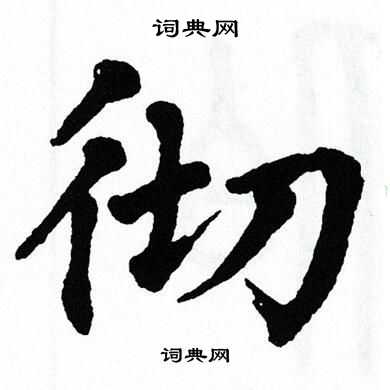 词典网
彻
词典网